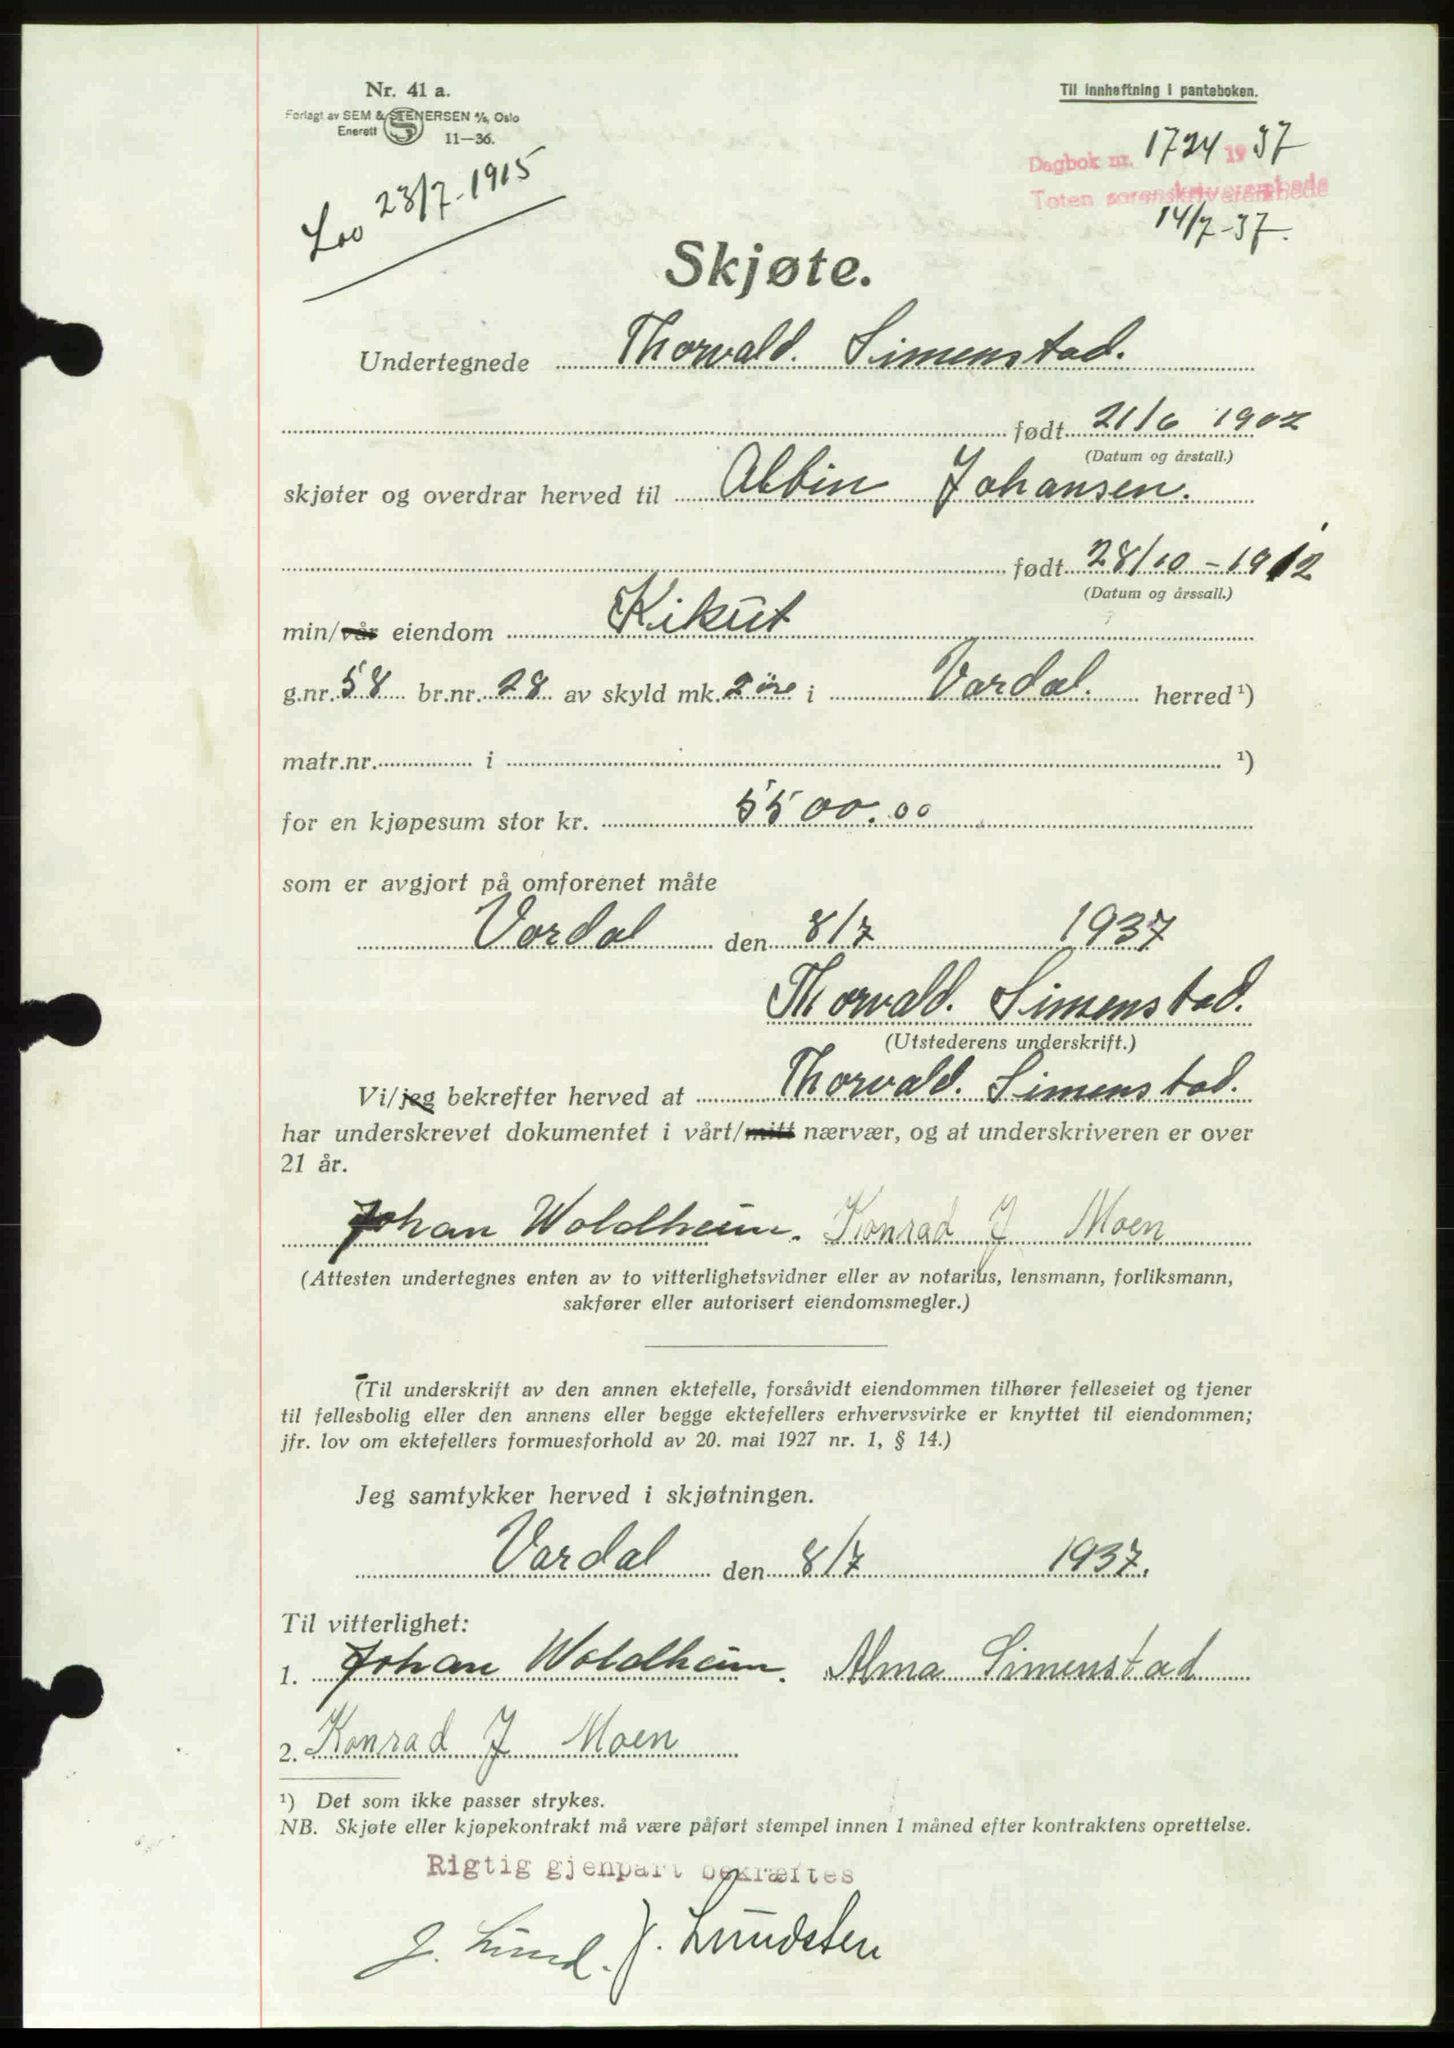 Nr. 41 a.
Forlagt av SEM & STENERSEN A/S, Oslo
Enerett S 11—36.
Til innheftning i panteboken.
Dagbok nr. 1724 1937
Toten sorenskriverembede
14/7-37.
Lov 28/7-1915
Skjøte.
Undertegnede Thorvald. Simenstad.
født 21/6 1902
(Datum og årstall.)
skjøter og overdrar herved til Albin Johansen.
født 28/10-1912
(Datum og årssall.)
min/vår eiendom Kikut
g.nr. 58 br.nr. 28 av skyld mk. 2 øre i Vardal. herred ¹)
matr.nr. i ¹)
for en kjøpesum stor kr. 5500.00
som er avgjort på omforenet måte
Vardal den 8/7 1937
Thorvald. Simenstad.
(Utstederens underskrift.)
Vi/jeg bekrefter herved at Thorvald. Simenstad.
har underskrevet dokumentet i vårt/mitt nærvær, og at underskriveren er over
21 år.
Johan Woldheim. Konrad J Moen
(Attesten undertegnes enten av to vitterlighetsvidner eller av notarius, lensmann, forliksmann,
sakfører eller autorisert eiendomsmegler.)
(Til underskrift av den annen ektefelle, forsåvidt eiendommen tilhører felleseiet og tjener
til fellesbolig eller den annens eller begge ektefellers erhvervsvirke er knyttet til eiendommen;
jfr. lov om ektefellers formuesforhold av 20. mai 1927 nr. 1, § 14.)
Jeg samtykker herved i skjøtningen.
Vardal den 8/7 1937.
Til vitterlighet:
1. Johan Woldheim. Alma Simenstad
2. Konrad J Moen
¹) Det som ikke passer strykes.
NB. Skjøte eller kjøpekontrakt må være påført stempel innen 1 måned efter kontraktens oprettelse.
Rigtig gjenpart bekræftes
J. Lund. J. Lundsten